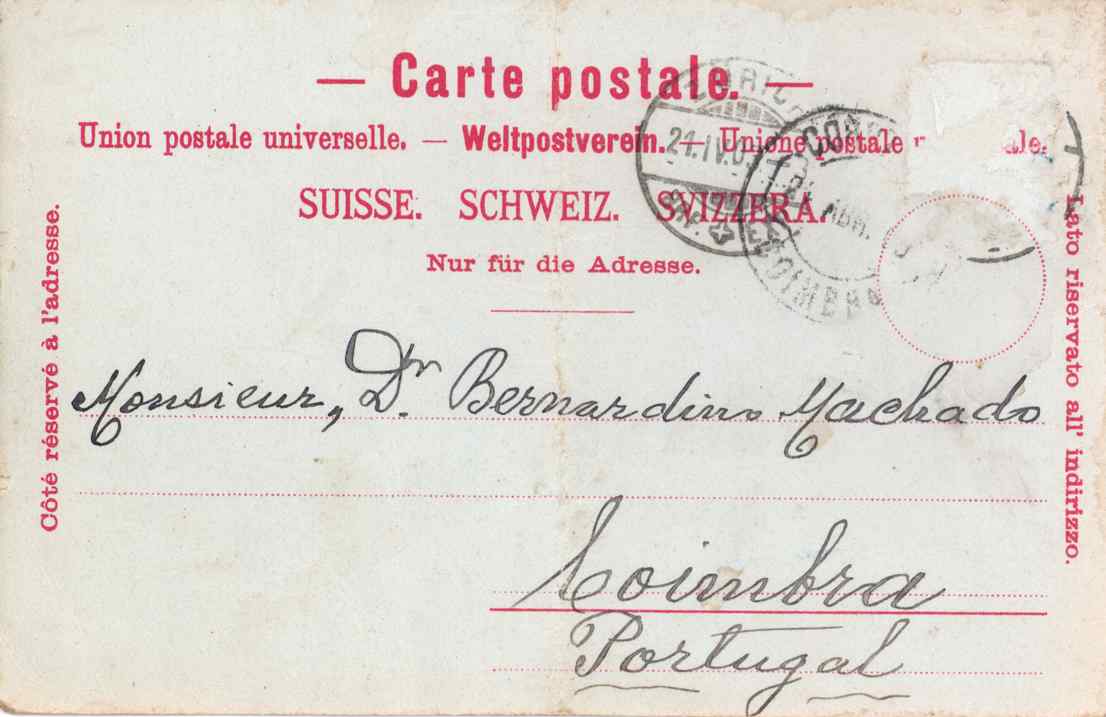 — Carte postale. —
Union postale universelle. — Weltpostverein. — Unione postale
SUISSE. SCHWEIZ. SVIZZERA.
Nur für die Adresse.
Côté réservé à l'adresse.
Lato riservato all' indirizzo.
Monsieur, Dr. Bernardino Machado
Coimbra
Portugal
21.IV.0
COIMBRA